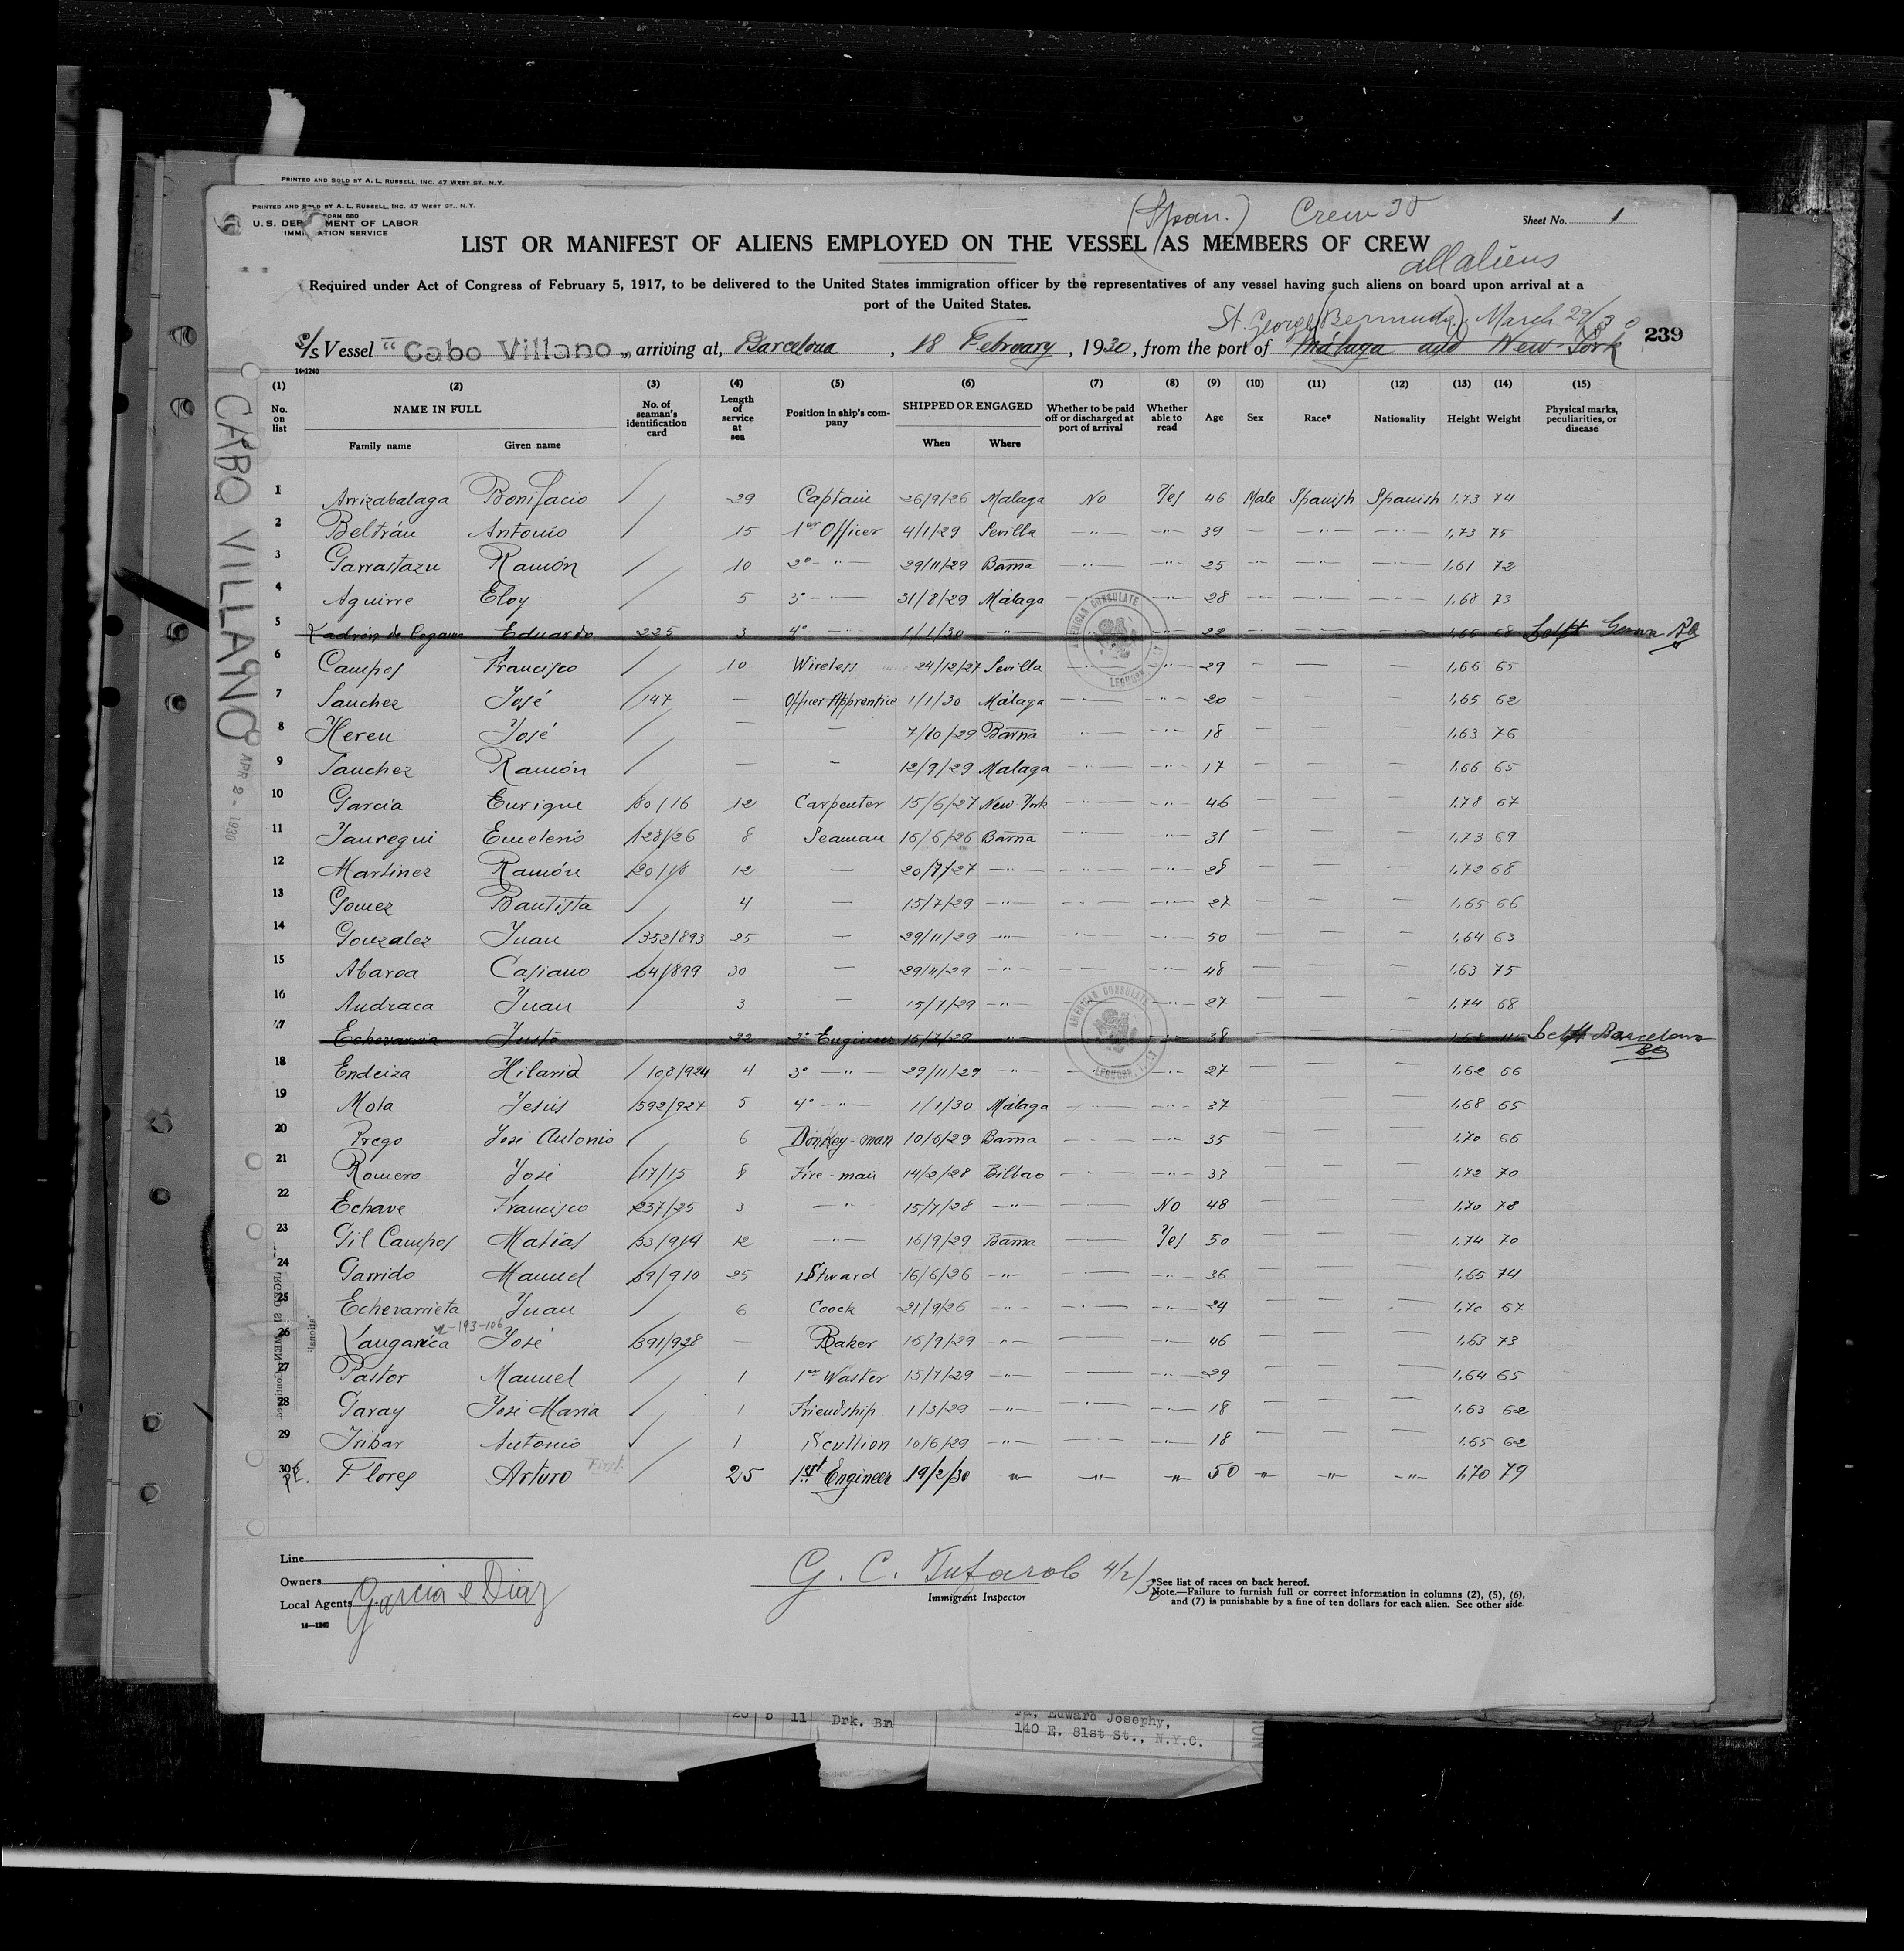 PRINTED AND SOLD BY A. L. RUSSELL, INC. 47 WEST ST., N.Y.
PRINTED AND SOLD BY A. L. RUSSELL, INC. 47 WEST ST., N.Y.
FORM 680
U. S. DEP MENT OF LABOR
IMMI ATION SERVICE
(Span.) Crew
Sheet No. 1
LIST OR MANIFEST OF ALIENS EMPLOYED ON THE VESSEL AS MEMBERS OF CREW
all aliens
Required under Act of Congress of February 5, 1917, to be delivered to the United States immigration officer by the representatives of any vessel having such aliens on board upon arrival at a
port of the United States.
St. George (Bermuda) March 29/30
S/S Vessel "Cabo Villano" arriving at, Barcelona, 18 February, 1930, from the port of Málaga and New-York 239
14-1240
(1) (2) (3) (4) (5) (6) (7) (8) (9) (10) (11) (12) (13) (14) (15)
No. on list NAME IN FULL No. of seaman's identification card Length of service at sea Position in ship's company SHIPPED OR ENGAGED Whether to be paid off or discharged at port of arrival Whether able to read Age Sex Race* Nationality Height Weight Physical marks, peculiarities, or disease
Family name Given name When Where
CABO VILLANO
APR 2 - 1930
1 Arrizabalaga Bonifacio / 29 Captain 26/9/26 Malaga No Yes 46 Male Spanish Spanish 1,73 74
2 Beltrán Antonio / 15 1er Officer 4/1/29 Sevilla —"— —"— 39 — —"— —"— 1,73 75
3 Garrastazu Ramón / 10 2º —"— 29/11/29 Barna —"— —"— 25 — —"— —"— 1,61 72
4 Aguirre Eloy / 5 3º —"— 31/8/29 Málaga —"— 28 — —"— —"— 1,68 73
5 Ladrón de Cegama Eduardo 225 3 4º —"— 1/1/30 —"— —"— 22 1,65 68
6 Campos Francisco / 10 Wireless 24/12/27 Sevilla —"— —"— 29 — — — 1,66 65
7 Sanchez José 147 — Officer Apprentice 1/1/30 Málaga —"— —"— 20 — — — 1,65 62
8 Hereu José / — — 7/10/29 Barna —"— —"— 18 — — — 1,63 76
9 Sanchez Ramón / — — 12/9/29 Malaga —"— —"— 17 — — — 1,66 65
10 Garcia Enrique 80/16 12 Carpenter 15/6/27 New-York —"— —"— 46 — — — 1,78 67
11 Jauregui Emeterio 128/26 8 Seaman 16/6/26 Barna —"— —"— 31 — — — 1,73 69
12 Martinez Ramón 20/18 12 — 20/7/27 —"— —"— —"— 28 — — — 1,72 68
13 Gomez Bautista / 4 — 15/7/29 —"— —"— —"— 27 — — — 1,65 66
14 Gonzalez Juan 352/893 25 — 29/11/29 —"— —"— —"— 50 — — — 1,64 63
15 Abaroa Casiano 64/899 30 — 29/11/29 —"— —"— —"— 48 — — — 1,63 75
16 Andraca Juan / 3 — 15/7/29 —"— —"— 27 — — — 1,74 68
17 Echevarria Justo 22 2º Engineer 15/7/29 —"— —"— 38 Barcelona
18 Endeiza Hilario 108/924 4 3º —"— 29/11/29 —"— —"— —"— 27 — — — 1,62 66
19 Mota Jesús 592/927 5 4º —"— 1/1/30 Málaga —"— —"— 37 — — — 1,68 65
20 Prego José Antonio / 6 Donkey-man 10/6/29 Barna — —"— 35 — — — 1,70 66
21 Romero José 17/15 8 Fire-man 14/2/28 Bilbao —"— —"— 33 — — — 1,72 70
22 Echave Francisco 237/25 3 —"— 15/7/28 —"— — No 48 — — — 1,70 78
23 Gil Campos Matias 53/914 12 —"— 16/9/29 Barna — Yes 50 — — — 1,74 70
24 Garrido Manuel 39/910 25 Stward 16/6/26 —"— —"— —"— 36 — — — 1,65 74
25 Echevarrieta Juan / 6 Coock 21/9/26 —"— —"— —"— 24 — — — 1,70 67
-193-106
26 José 591/928 — Baker 16/9/29 —"— — —"— 46 — — — 1,63 73
27 Pastor Manuel / 1 1er Waster 15/7/29 —"— — —"— 29 — — — 1,64 65
28 Garay José Maria / 1 Friendship 1/3/29 —"— —"— —"— 18 — — — 1,63 62
29 Iribar Antonio / 1 Scullion 10/6/29 —"— —"— —"— 18 — — — 1,65 62
30 Flores Arturo First / 25 1st Engineer 19/2/30 " —"— —"— 50 —"— —"— —"— 1,70 79
AMERICAN CONSULATE
LEGHORN
AMERICAN CONSULATE
LEGHORN
Line
Owners
Local Agents Garcia & Diaz
14—1240
G. C. Tufarolo 4/2/30
Immigrant Inspector
*See list of races on back hereof.
Note.—Failure to furnish full or correct information in columns (2), (5), (6),
and (7) is punishable by a fine of ten dollars for each alien. See other side
11 Drk. Brn
Edward Josephy,
140 E. 81st St., N.Y.C.